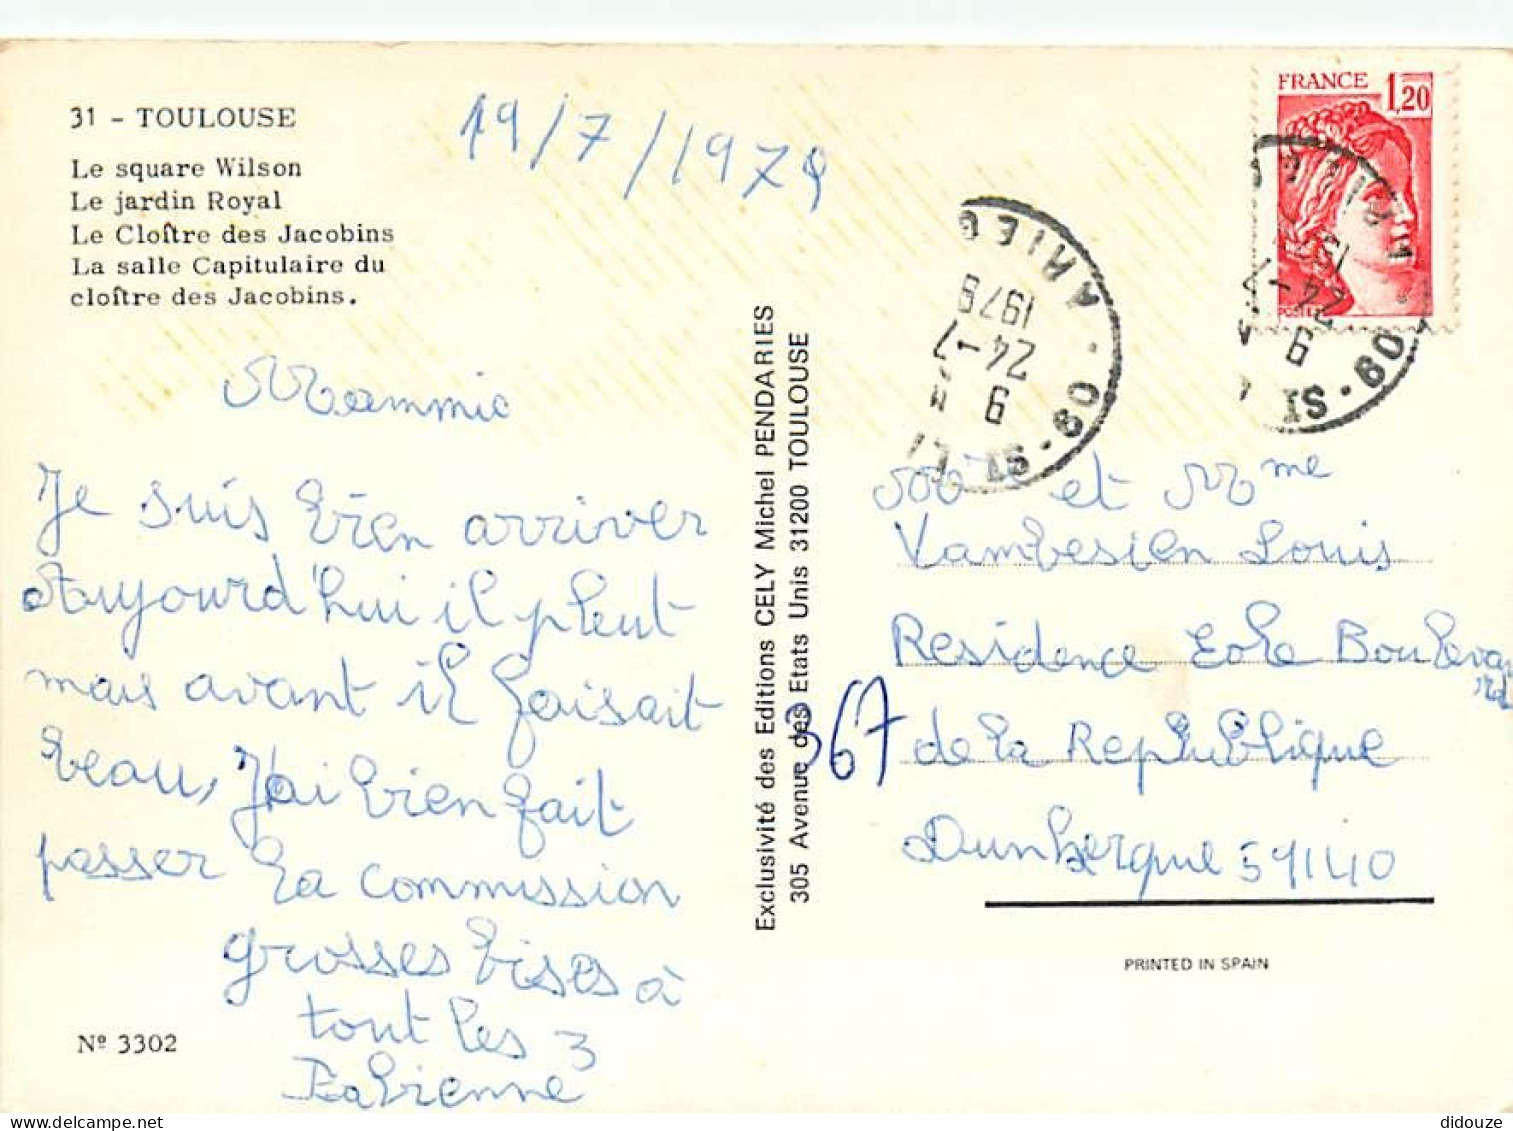 31 - TOULOUSE
Le square Wilson
Le jardin Royal
Le Cloître des Jacobins
La salle Capitulaire du
cloître des Jacobins.
19/7/1979
Mammie
Je suis bien arriver
Aujourd'hui il pleut
mais avant il faisait
beau, J'ai bien fait
passer la commission
grosses bises à
tout les 3
Fabienne
Nº 3302
Exclusivité des Editions CELY Michel PENDARIES
305 Avenue des Etats Unis 31200 TOULOUSE
FRANCE 1,20
09 - ST - LI
ARIEGE
9 H
24-7
1979
09 - ST
ARIEGE
9
24-7
et Mme
Vambesien Louis
Residence Eole Boulevard
367 de la Republique
Dunkerque 59140
PRINTED IN SPAIN
didouze